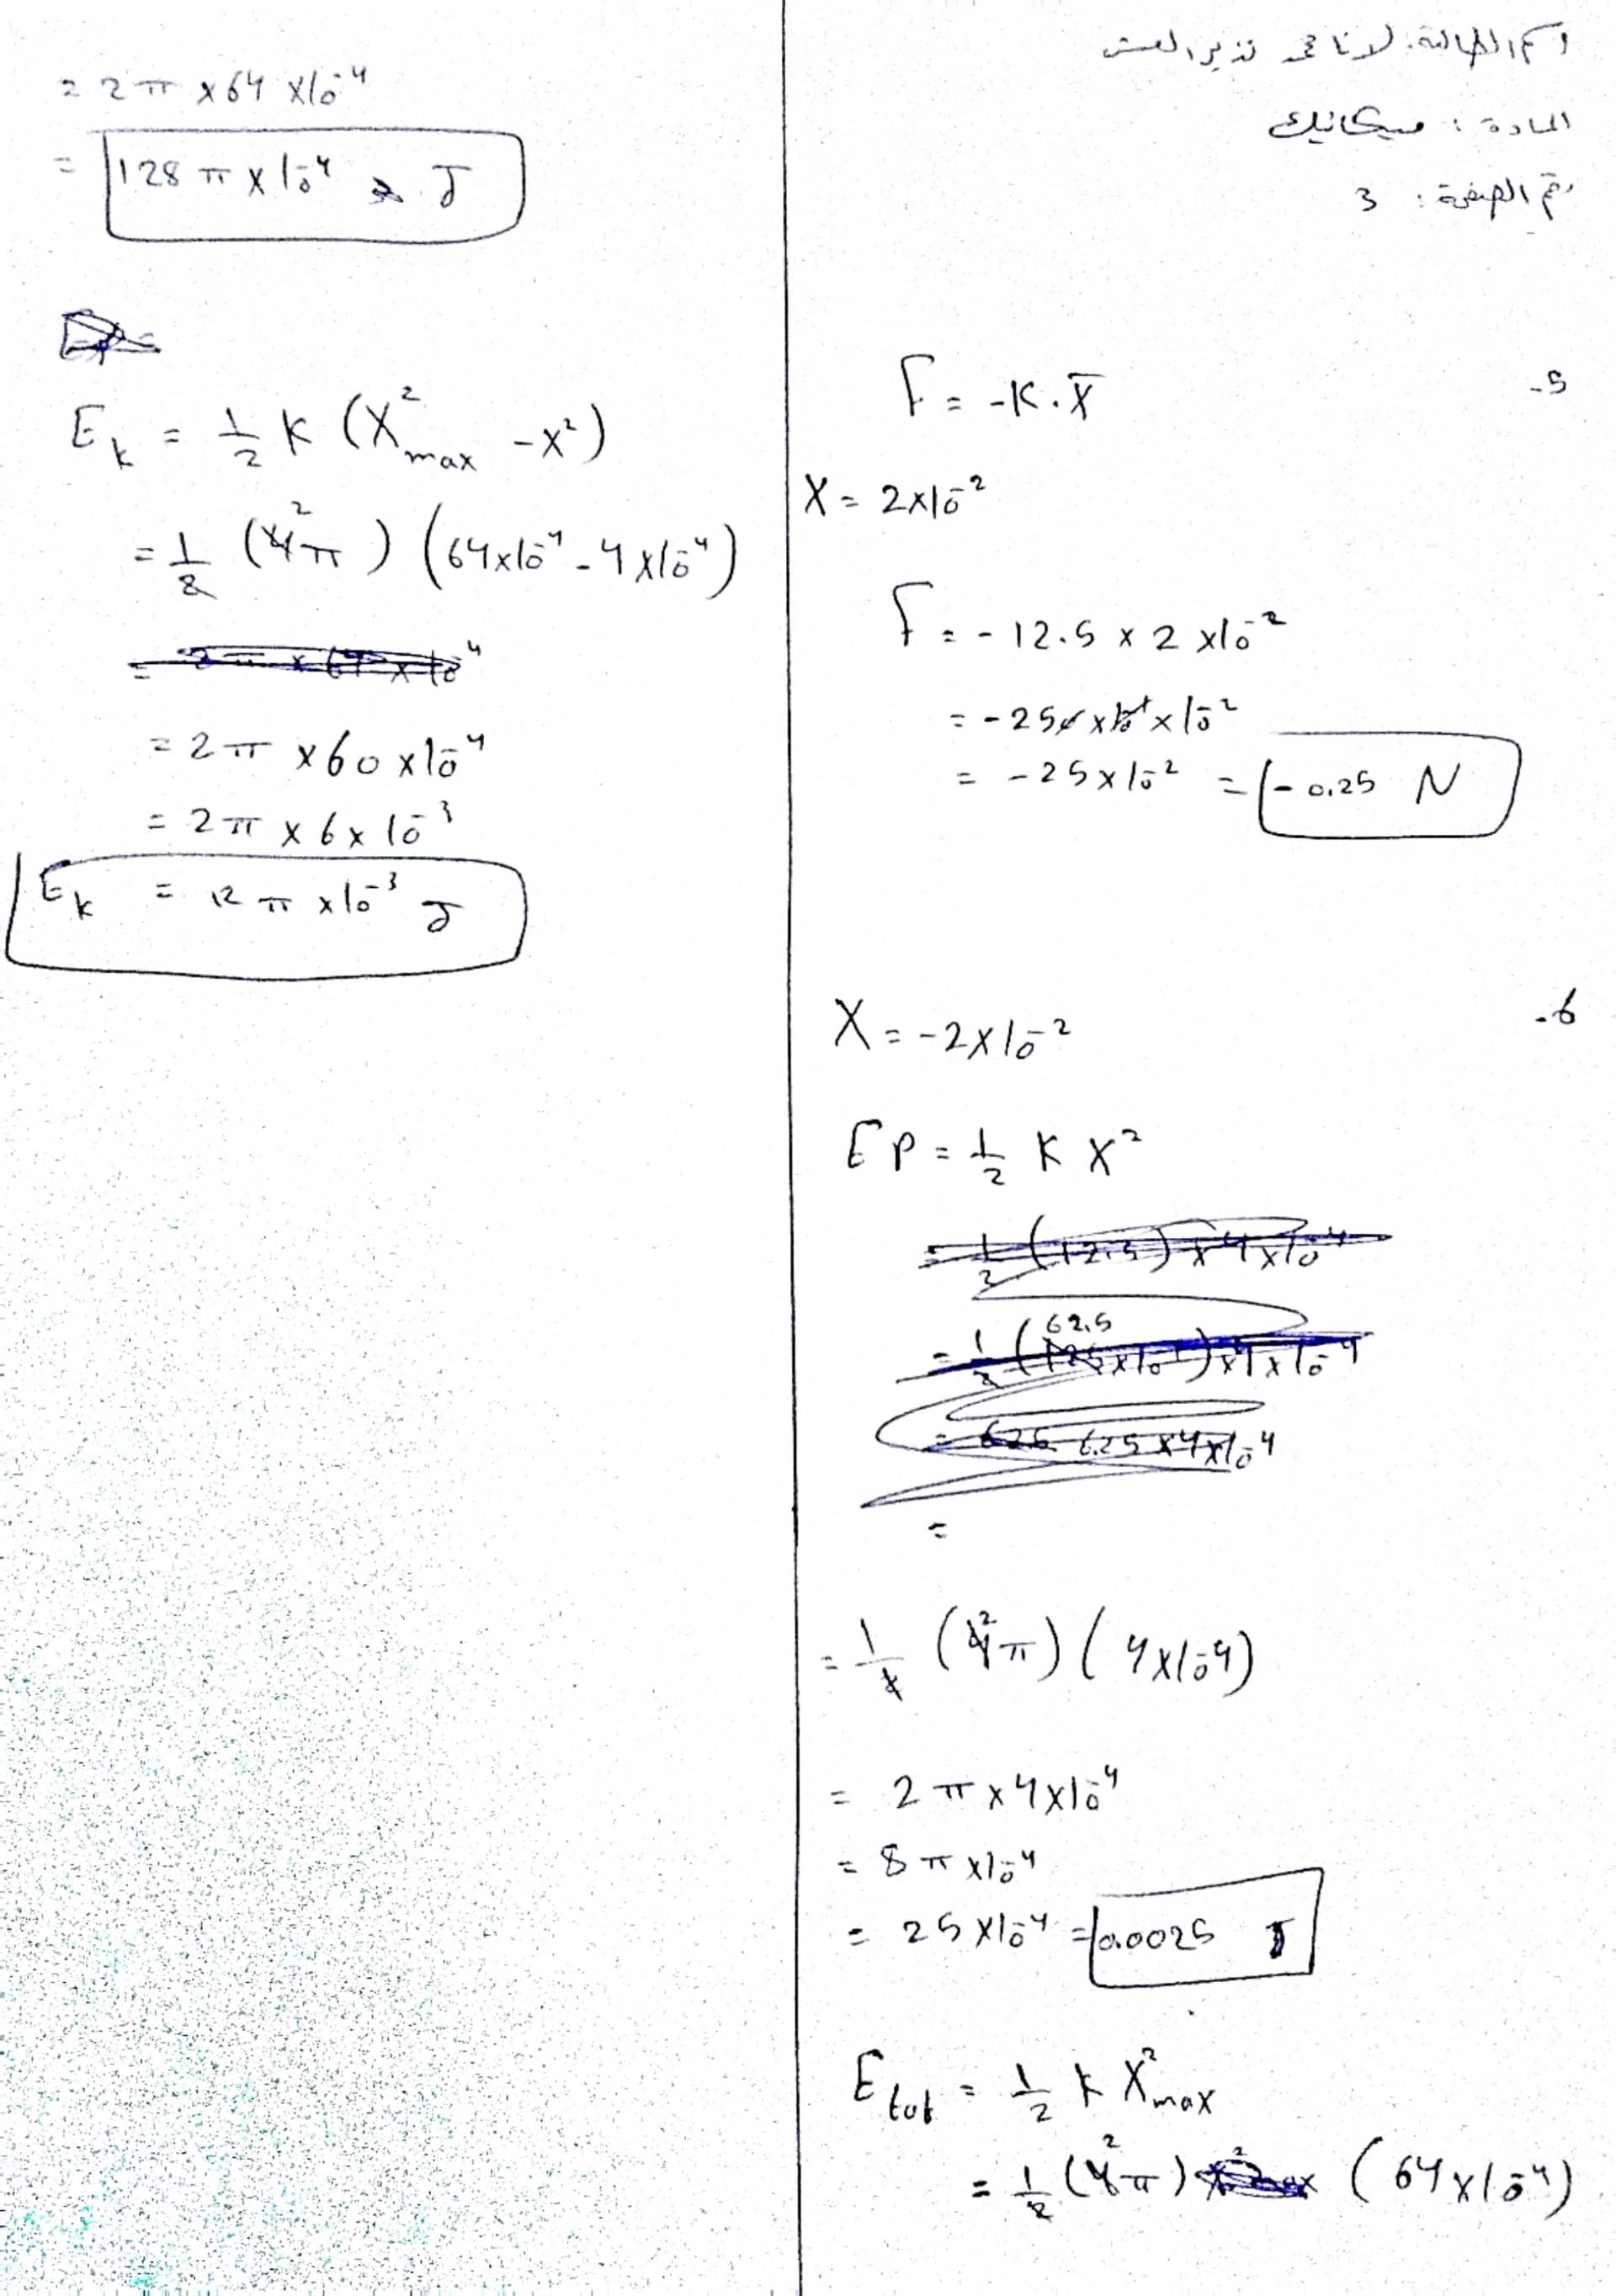 اسم الطالبة: لانا محمد نذير العش
المادة: ميكانيك
رقم الصفحة: 3
-5
F = -K.x̄
X = 2x10⁻²
F = -12.5 x 2 x10⁻²
= -25 x 10⁻²
= -25 x 10⁻² = -0.25 N
-6
X = -2x10⁻²
EP = 1/2 K X²
=
= 1/2 (4π) (4x10⁻⁴)
= 2π x 4x10⁻⁴
= 8π x10⁻⁴
= 25 x10⁻⁴ = 0.0025 J
E tot = 1/2 k X²max
= 1/2 (4π) (64 x10⁻⁴)
= 2π x 64 x10⁻⁴
= 128 π x 10⁻⁴ J
E k = 1/2 K (X²max - x²)
= 1/2 (4π) (64x10⁻⁴ - 4x10⁻⁴)
= 2π x 60 x10⁻⁴
= 2π x 6 x 10⁻³
E k = 12 π x10⁻³ J